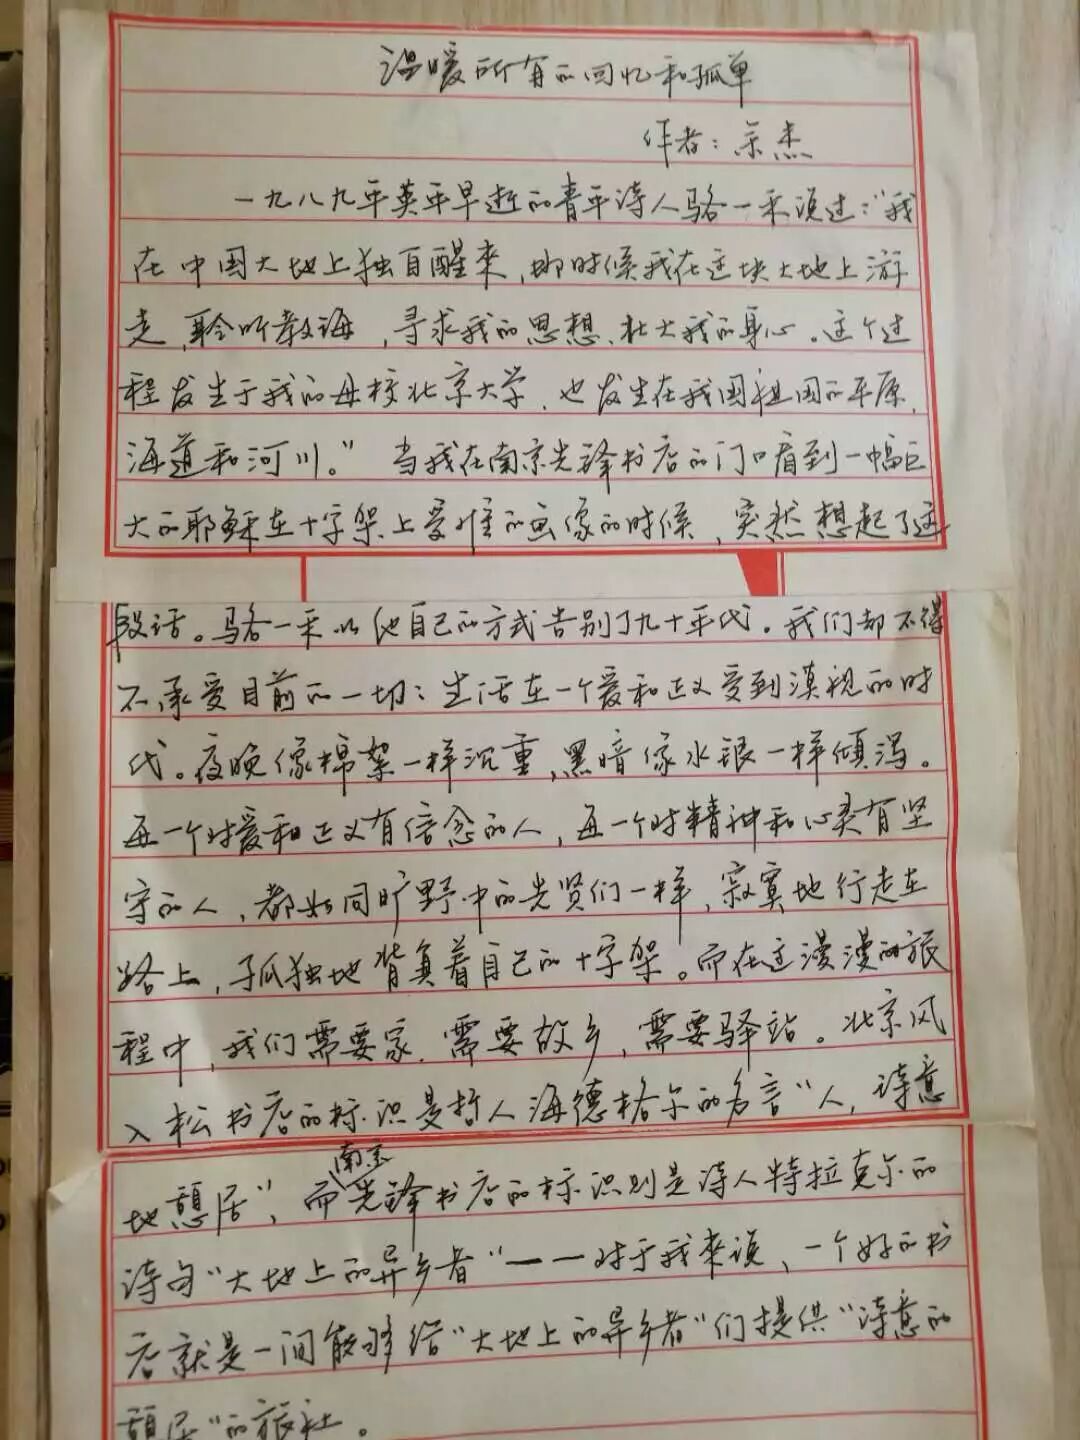 温暖所有的回忆和孤单
作者：余杰
一九八九年英年早逝的青年诗人骆一禾说过：“我
在中国大地上独自醒来，那时候我在这块大地上游
走，聆听教诲，寻求我的思想、壮大我的身心。这个过
程发生于我的母校北京大学，也发生在我国祖国的平原，
海道和河川。”当我在南京先锋书店的门口看到一幅巨
大的耶稣在十字架上受难的画像的时候，突然想起了这
段话。骆一禾以他自己的方式告别了九十年代。我们都不得
不承受目前的一切：生活在一个爱和正义受到漠视的时
代。夜晚像棉絮一样沉重，黑暗像水银一样倾泻。
每一个对爱和正义有信念的人，每一个对精神和心灵有坚
守的人，都如同旷野中的先贤们一样，寂寞地行走在
路上，孤独地背负着自己的十字架。而在这漫漫的旅
程中，我们需要家，需要故乡，需要驿站。北京风
入松书店的标识是哲人海德格尔的名言“人，诗意
地憩居”，而南京先锋书店的标识则是诗人特拉克尔的
诗句“大地上的异乡者”——对于我来说，一个好的书
店就是一间能够给“大地上的异乡者”们提供“诗意的
憩居”的旅社。